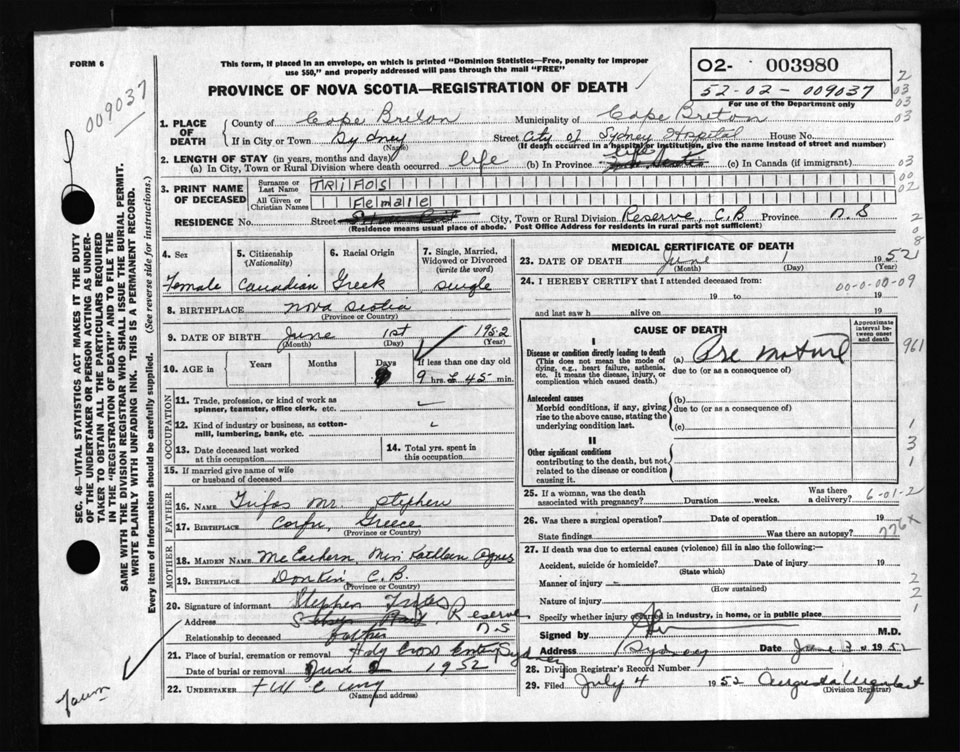 FORM 6
This form, if placed in an envelope, on which is printed "Dominion Statistics—Free, penalty for improper
use $50," and properly addressed will pass through the mail "FREE"
PROVINCE OF NOVA SCOTIA—REGISTRATION OF DEATH
O2- 003980
52-02-009037
For use of the Department only
009037
SEC. 46—VITAL STATISTICS ACT MAKES IT THE DUTY
OF THE UNDERTAKER OR PERSON ACTING AS UNDER-
TAKER TO OBTAIN ALL THE PARTICULARS REQUIRED
IN THE "REGISTRATION OF DEATH" AND TO FILE THE
SAME WITH THE DIVISION REGISTRAR WHO SHALL ISSUE THE BURIAL PERMIT.
WRITE PLAINLY WITH UNFADING INK. THIS IS A PERMANENT RECORD.
Every item of information should be carefully supplied. (See reverse side for instructions.)
1. PLACE OF DEATH
County of Cape Breton Municipality of Cape Breton
If in City or Town Sydney Street City of Sydney Hospital House No.
(Name) (If death occurred in a hospital or institution, give the name instead of street and number)
2. LENGTH OF STAY (in years, months and days)
(a) In City, Town or Rural Division where death occurred life (b) In Province life (c) In Canada (if immigrant)
3. PRINT NAME OF DECEASED
Surname or Last Name TRIFOS
All Given or Christian Names Female
RESIDENCE No. Street City, Town or Rural Division Reserve, C.B Province N.S
(Residence means usual place of abode. Post Office Address for residents in rural parts not sufficient)
4. Sex 5. Citizenship (Nationality) 6. Racial Origin 7. Single, Married, Widowed or Divorced (write the word)
Female Canadian Greek Single
8. BIRTHPLACE Nova Scotia
(Province or Country)
9. DATE OF BIRTH June 1st 1952
(Month) (Day) (Year)
10. AGE in Years Months Days If less than one day old
9 hrs. 45 min.
OCCUPATION
11. Trade, profession, or kind of work as
spinner, teamster, office clerk, etc.
12. Kind of industry or business, as cotton-
mill, lumbering, bank, etc.
13. Date deceased last worked at this occupation
14. Total yrs. spent in this occupation
15. If married give name of wife
or husband of deceased
FATHER
16. Name Trifos Mr. Stephen
17. Birthplace Corfu, Greece
(Province or Country)
MOTHER
18. Maiden Name McEachern, Kathleen Agnes
19. Birthplace Donkin C.B.
(Province or Country)
20. Signature of informant Stephen Trifos
Address Reserve N.S
Relationship to deceased father
21. Place of burial, cremation or removal Holy Cross Sydney
Date of burial or removal June 2 1952
22. UNDERTAKER
(Name and address)
MEDICAL CERTIFICATE OF DEATH
23. DATE OF DEATH June 1 1952
(Month) (Day) (Year)
24. I HEREBY CERTIFY that I attended deceased from:
00-0-00-09
19 to 19
and last saw h alive on 19
CAUSE OF DEATH
Approximate interval between onset and death
I
Disease or condition directly leading to death
(This does not mean the mode of
dying, e.g., heart failure, asthenia,
etc. It means the disease, injury, or
complication which caused death.)
(a) Pre mature
due to (or as a consequence of)
Antecedent causes
Morbid conditions, if any, giving
rise to the above cause, stating the
underlying condition last.
(b)
due to (or as a consequence of)
(c)
II
Other significant conditions
contributing to the death, but not
related to the disease or condition
causing it.
25. If a woman, was the death associated with pregnancy? Duration weeks. Was there a delivery? 6-01-2
26. Was there a surgical operation? Date of operation 19
State findings Was there an autopsy? 776x
27. If death was due to external causes (violence) fill in also the following:—
Accident, suicide or homicide? Date of injury 19
(State which)
Manner of injury
(How sustained)
Nature of injury
Specify whether injury occurred in industry, in home, or in public place
Signed by M.D.
Address Sydney Date June 3 1952
28. Division Registrar's Record Number
29. Filed July 4 1952 Augusta Urquhart
(Division Registrar)
2
03
03
03
03
00
02
2
08
961
1
3
1
2
2
1